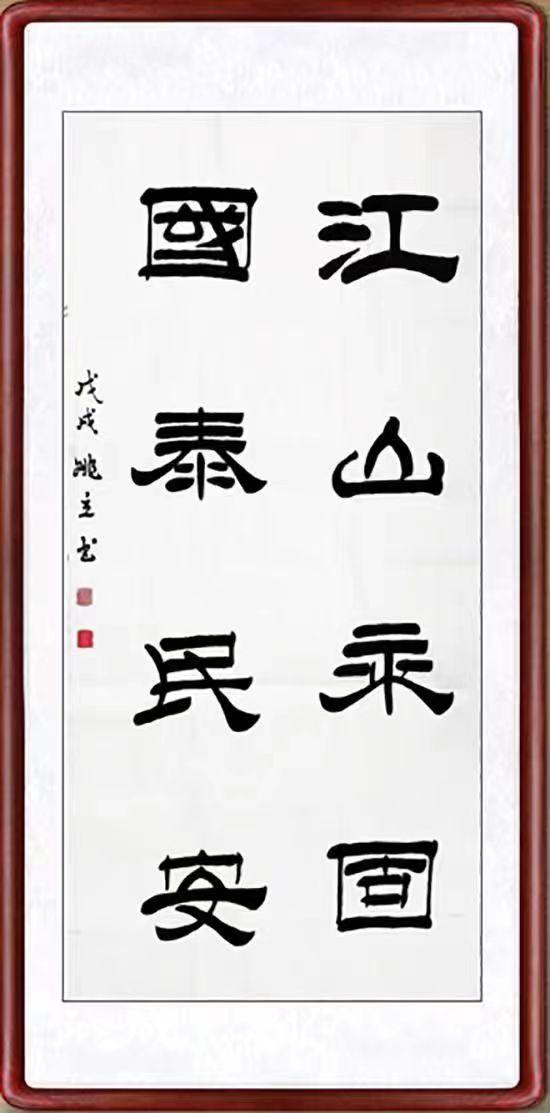 江山永固
國泰民安
戊戌姚立书